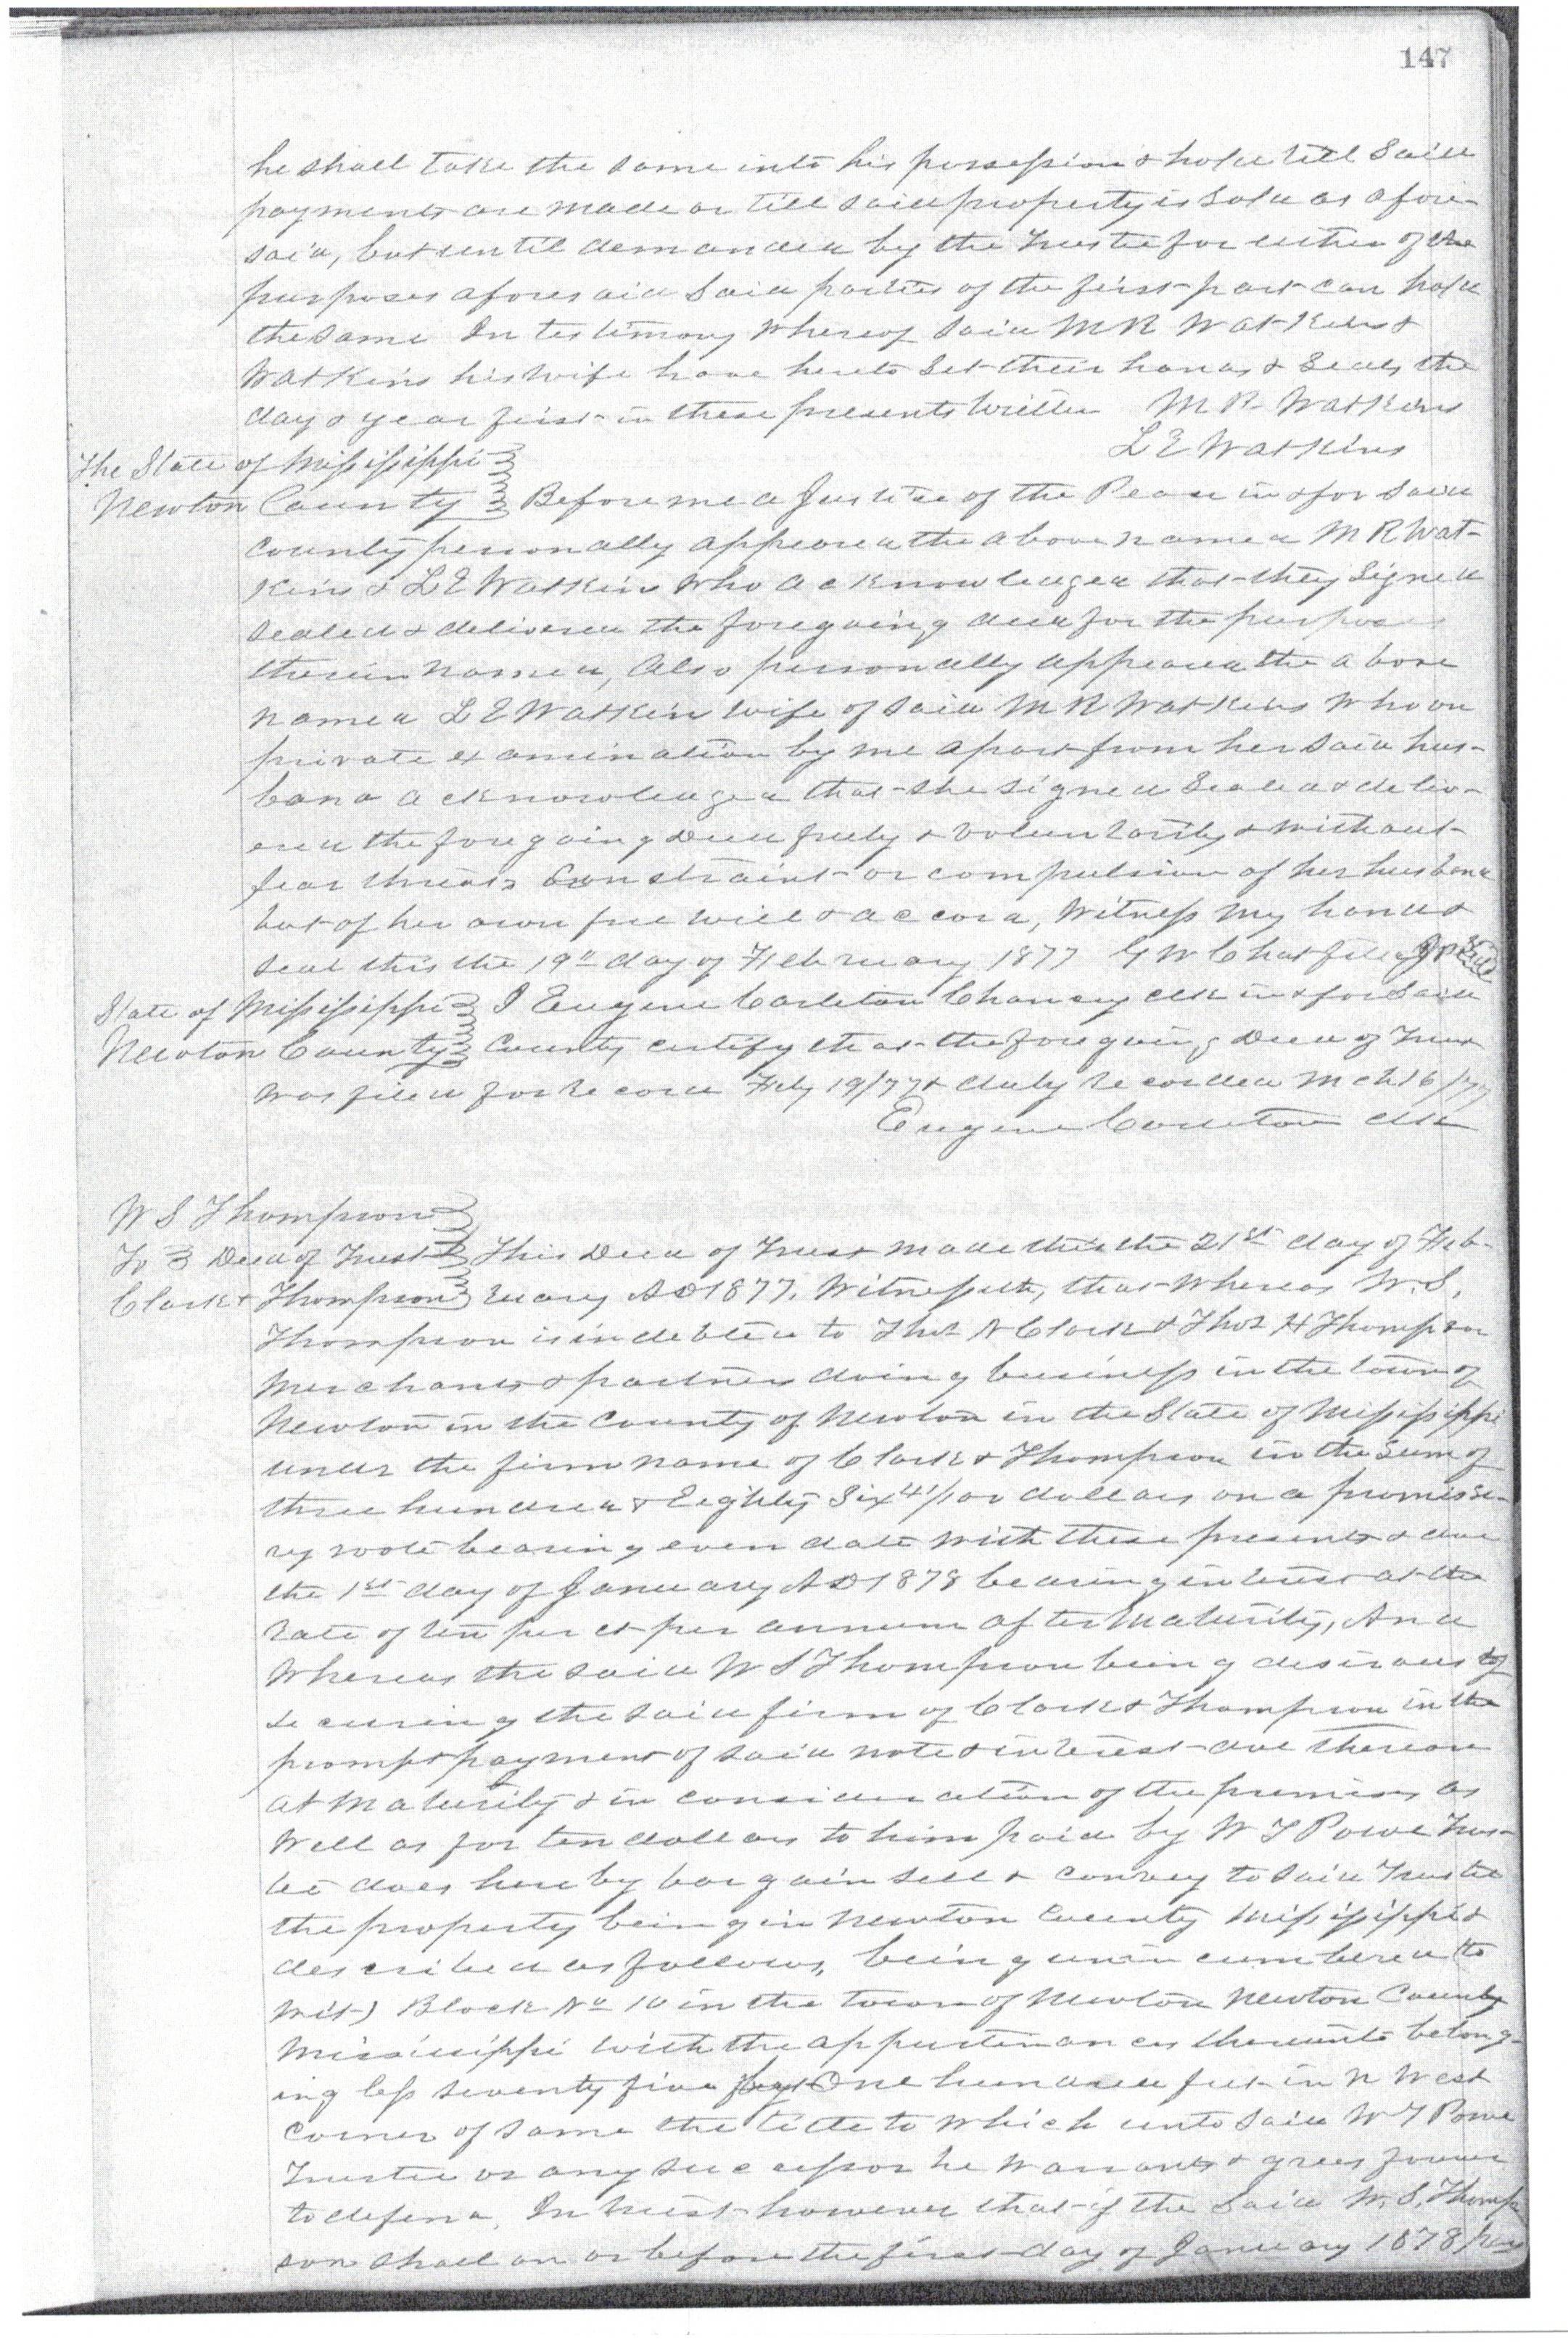 147
he shall take the same into his possession & hold till said
payments are made or till said property is sold as afore-
said, but until demanded by the Trustee for either of the
purposes aforesaid said parties of the first part can hold
the same In testimony whereof said M R Watkins &
Watkins his wife have hereto set their hands & seals the
day & year first in these presents written M R Watkins
L E Watkins
The State of Mississippi
Newton County Before me a Justice of the Peace in & for said
county personally appeared the above named M R Wat-
kins & L E Watkins who acknowledged that they signed
sealed & delivered the foregoing deed for the purposes
therein named, Also personally appeared the above
named L E Watkins wife of said M R Watkins who on
private examination by me apart from her said hus-
band acknowledged that she signed sealed & deliv-
ered the foregoing Deed freely & voluntarily & without
fear threats constraint or compulsion of her husband
but of her own free will & accord, Witness my hand &
seal this the 19" day of February 1877 G W Chatfield J P Seal
State of Mississippi I Eugene Carleton Chancy Clk in & for said
Newton County County certify that the foregoing Deed of Trust
was filed for record Feby 19/77 & duly recorded Mch 16/77
Eugene Carleton Clk
W S Thompson
To Deed of Trust This Deed of Trust made this the 21st day of Feb-
Clark & Thompson ruary AD 1877, Witnesseth, that whereas W. S.
Thompson is indebted to Thos N Clark & Thos H Thompson
Merchants & partners doing business in the town of
Newton in the County of Newton in the State of Mississippi
under the firm name of Clark & Thompson in the sum of
three hundred & Eighty Six 41/100 dollars on a promisso-
ry note bearing even date with these presents & due
the 1st day of January AD 1878 bearing interest at the
rate of ten per ct per annum after maturity, And
Whereas the said W S Thompson being desirous of
securing the said firm of Clark & Thompson in the
prompt payment of said note & interest due thereon
at maturity & in consideration of the premises as
well as for ten dollars to him paid by W T Powe Trus-
tee does hereby bargain sell & convey to said Trustee
the property being in Newton County Mississippi &
described as follows, being unincumbered (to
wit) Block No 10 in the town of Newton Newton County
Mississippi with the appurtenances thereunto belong-
ing less seventy five by One hundred feet in N West
corner of same the title to which unto said W T Powe
Trustee or any successor he warrants & agrees forever
to defend, In trust however that if the said W. S. Thomp
son shall on or before the first day of January 1878 pay